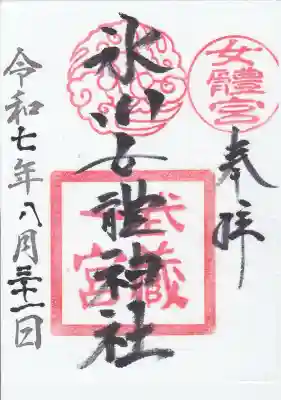 奉拝
女體宮
氷川女體神社
武蔵一宮
令和七年八月三十一日